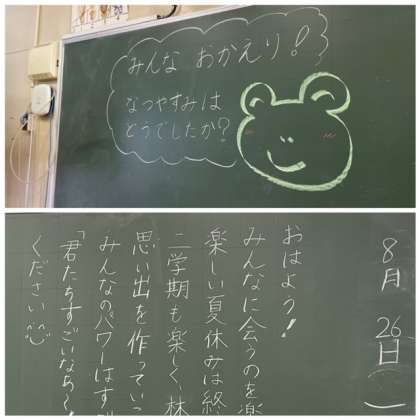 みんな おかえり!
なつやすみは
どうでしたか?
8月 26日(
おはよう!
みんなに会うのを楽
楽しい夏休みは終
二学期も楽しく、
思い出を作ってい
みんなのパワーはす
「君たちすごいなあ〜!
ください ^^